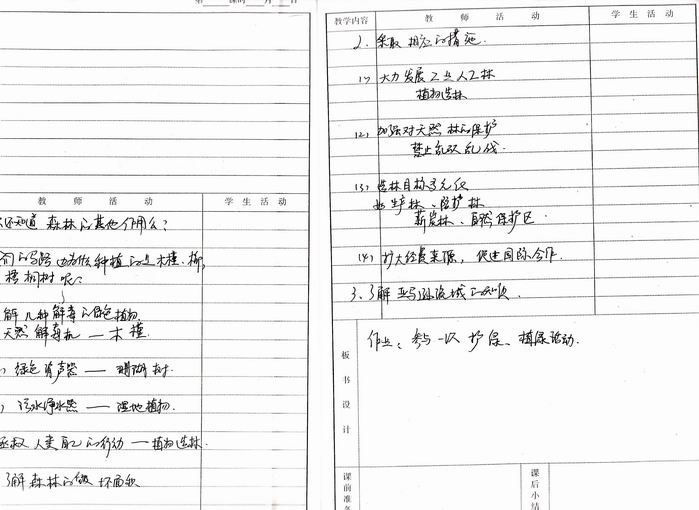 教师活动 学生活动
还知道 森林的其他作用么?
种植的是木槿、柳,
梧桐树呢?
解几种解毒的绿色植物.
天然解毒机 — 木槿
绿色消声器 — 珊瑚树.
污水净水器 — 湿地植物.
拯救人类自己的行动 — 植树造林.
了解森林的破坏面积
教学内容 教师活动 学生活动
2. 采取相应的措施.
(1) 大力发展工业人工林
植树造林
(2) 加强对天然林的保护
禁止乱砍乱伐.
(3) 造林目标多元化
如生产林、防护林
薪炭林、自然保护区
(4) 扩大经费来源, 促进国际合作.
3. 了解亚马孙流域的知识.
板书设计
作业: 参与一次护绿、植绿活动.
课前准备
课后小结